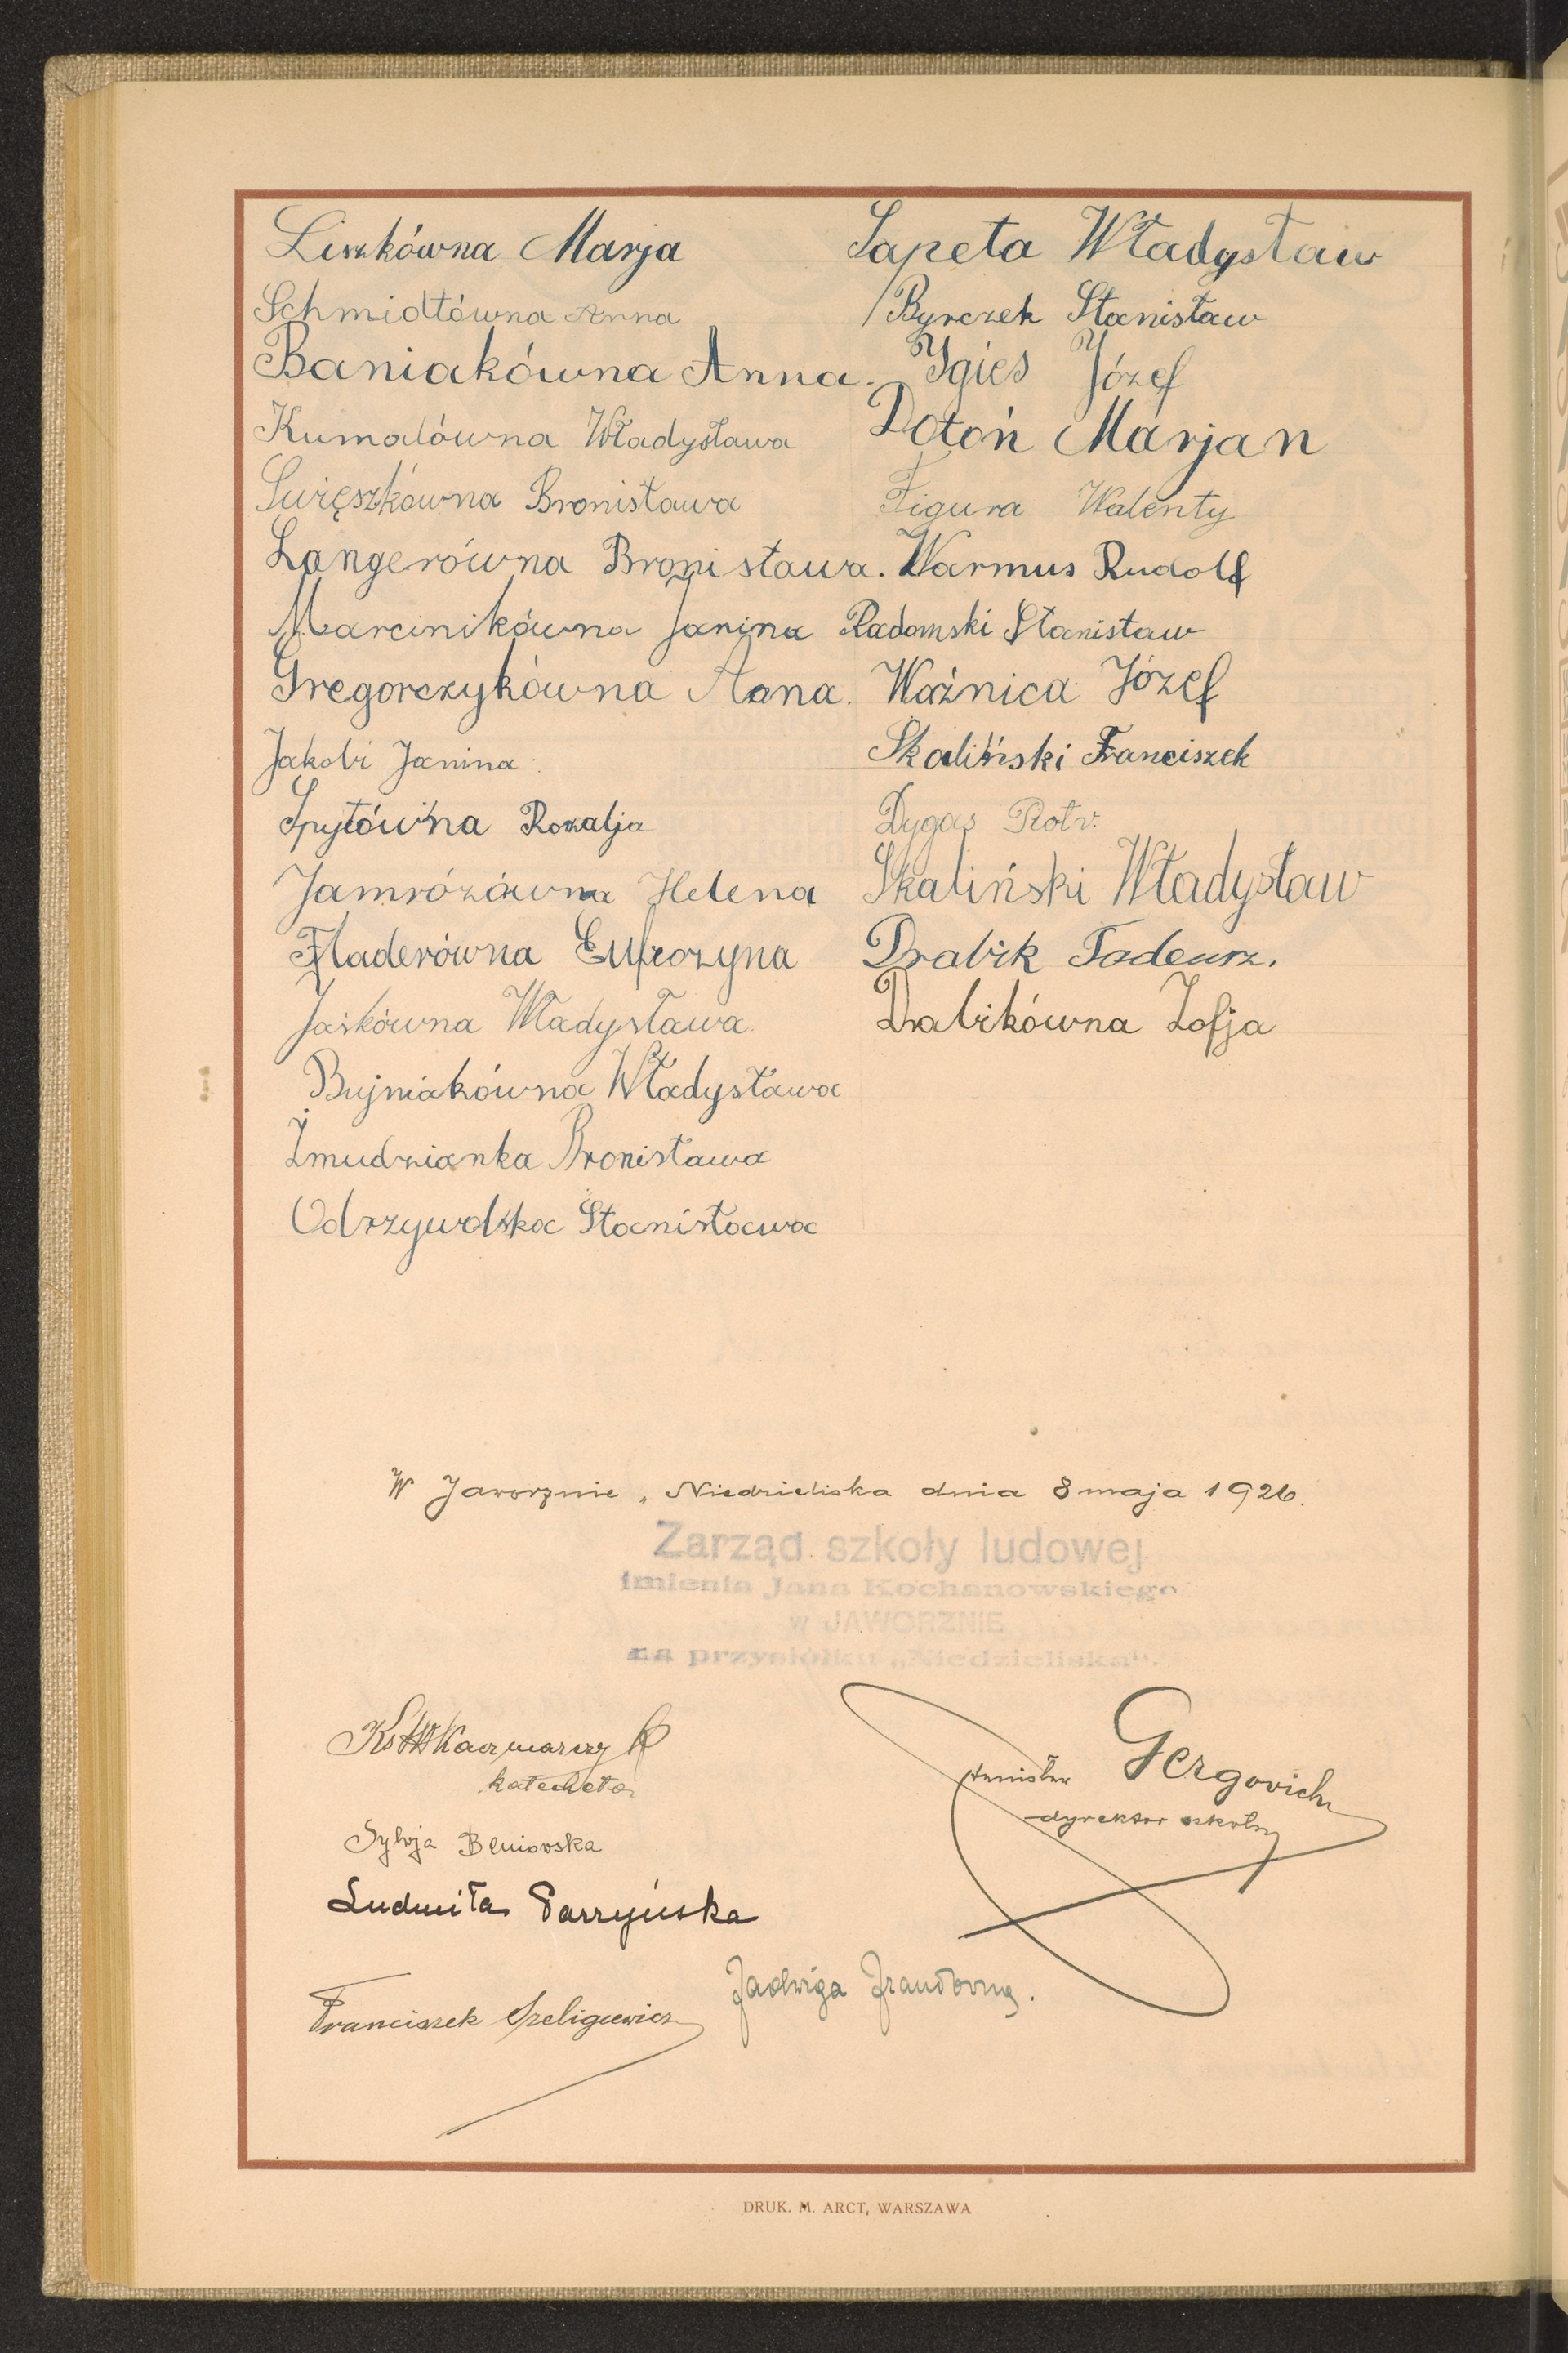 Liszkówna Marja
Schmidtówna Anna
Baniakówna Anna.
Kumalówna Władysława
Swięszkówna Bronisława
Langerówna Bronisława.
Marcinikówna Janina
Gregorczykówna Anna.
Jakobi Janina
Spytówna Rozalja
Jamrózówna Helena
Fladerówna Eufrozyna
Jaśkówna Władysława.
Bujniakówna Władysława
Żmudzianka Bronisława
Odrzywolska Stanisława
Sapeta Władysław
Byrczek Stanisław
Igies Józef
Dotoń Marjan
Figura Walenty
Warmus Rudolf
Radomski Stanisław
Woźnica Józef
Skaliński Franciszek
Dygas Piotr.
Skaliński Władysław
Drabik Tadeusz.
Drabikówna Zofja
W Jaworznie, Niedzieliska dnia 8 maja 1926.
Zarząd szkoły ludowej
imienia Jana Kochanowskiego
w JAWORZNIE
na przysiółku „Niedzieliska".
Kaczmarczyk
katecheta
Stanisław Gergovich
dyrektor szkoły
Sylwja Beniowska
Ludmiła Parzyńska
Jadwiga
Franciszek Szeligiewicz
DRUK. M. ARCT, WARSZAWA